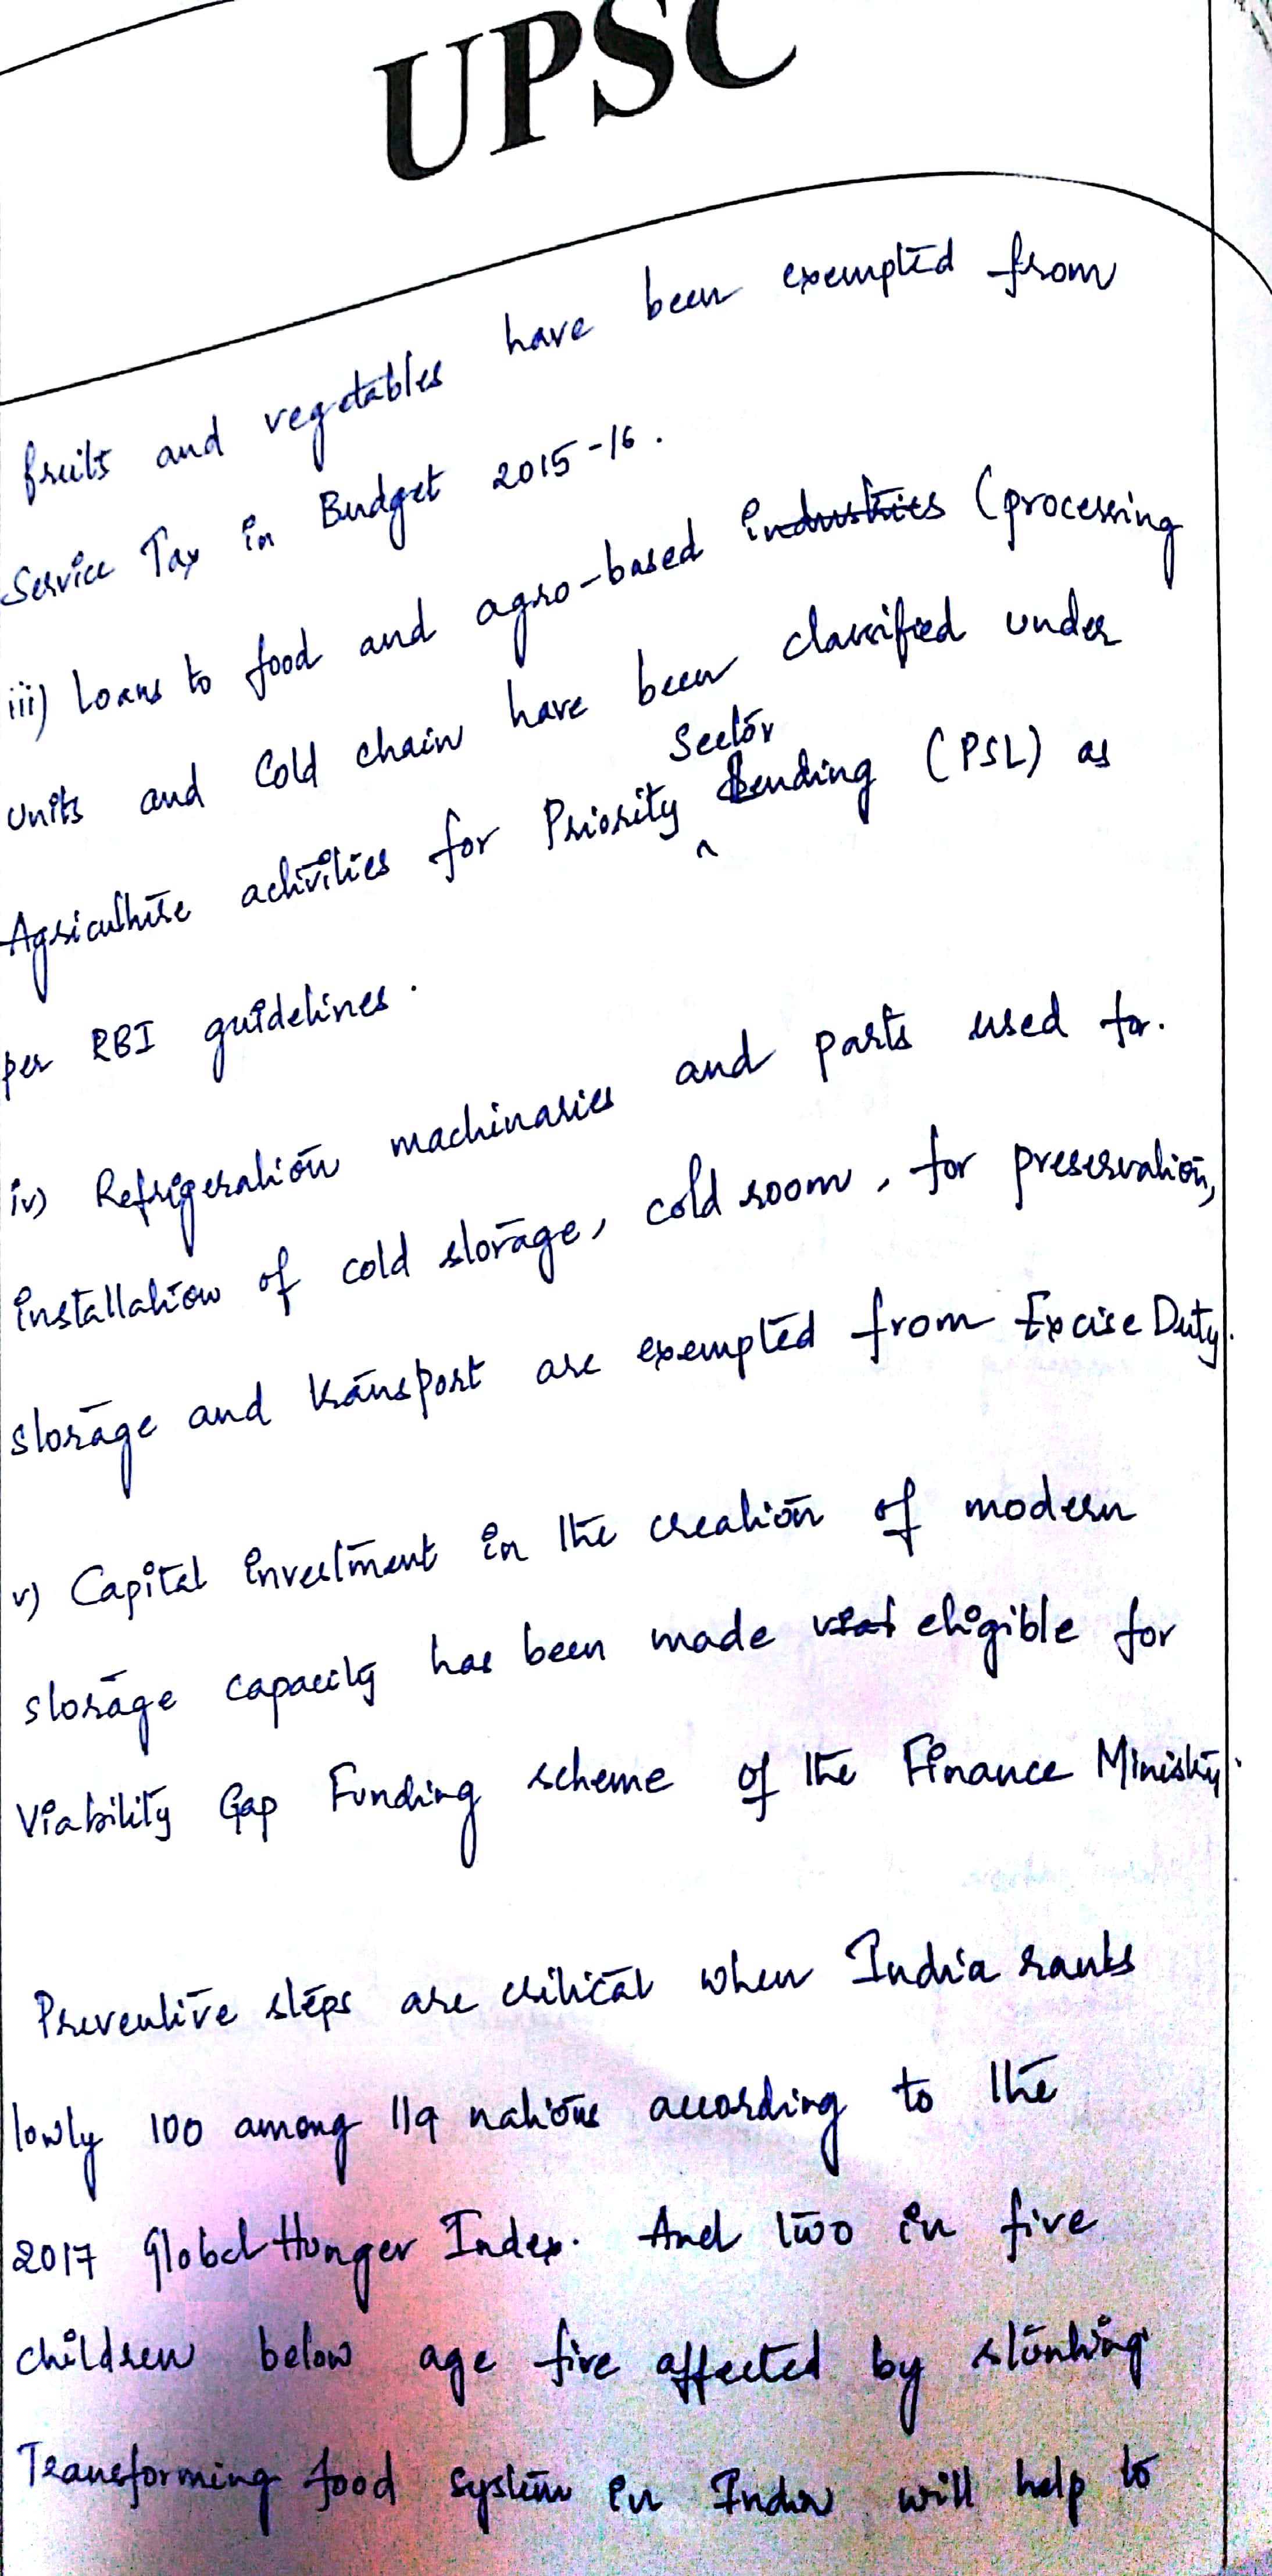 UPSC
fruits and vegetables have been exempted from
Service Tax in Budget 2015-16.
iii) Loans to food and agro-based industries (processing
units and Cold chain have been classified under
Agriculture activities for Priority Sector Lending (PSL) as
per RBI guidelines.
iv) Refrigeration machinaries and parts used for.
installation of cold storage, cold room, for preservation,
storage and transport are exempted from Excise Duty.
v) Capital investment in the creation of modern
storage capacity has been made eligible for
Viability Gap Funding scheme of the Finance Ministry.
Preventive steps are critical when India ranks
lowly 100 among 119 nations according to the
2017 Global Hunger Index. And two in five
children below age five affected by stunting
Transforming food system in India will help to